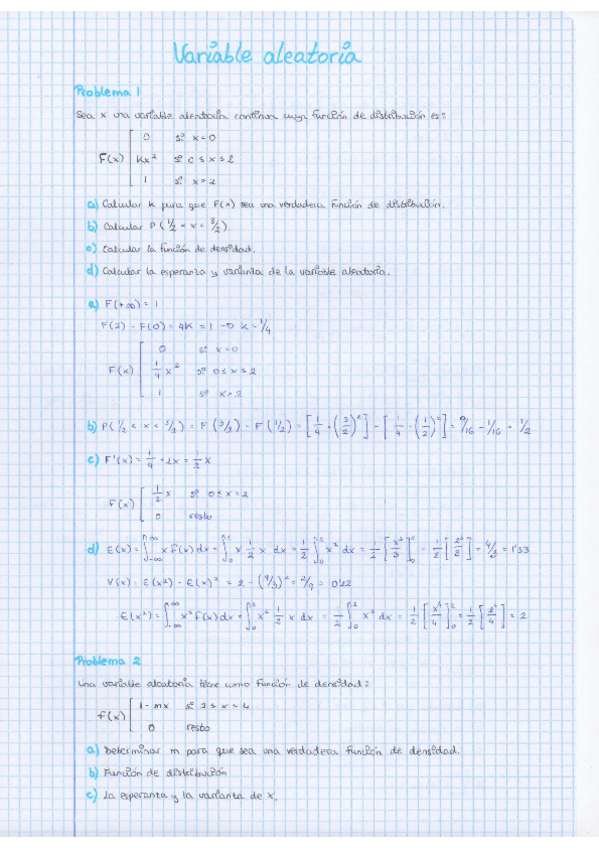 Variable aleatoria
Problema 1
Sea x una variable aleatoria continua cuya función de distribución es:
0 si x<0
F(x) kx² si 0 ≤ x ≤ 2
1 si x>2
a) Calcular k para que F(x) sea una verdadera función de distribución.
b) Calcular P(1/2 < x < 3/2)
c) Calcular la función de densidad.
d) Calcular la esperanza y varianza de la variable aleatoria.
a) F(+∞) = 1
F(2) - F(0) = 4k = 1 → k = 1/4
0 si x<0
F(x) 1/4 x² si 0 ≤ x ≤ 2
1 si x>2
b) P(1/2 < x < 3/2) = F(3/2) - F(1/2) = [1/4 · (3/2)²] - [1/4 · (1/2)²] = 9/16 - 1/16 = 1/2
c) F'(x) = 1/4 · 2x = 1/2 x
f(x) 1/2 x si 0 ≤ x ≤ 2
0 resto
d) E(x) = ∫ x f(x) dx = ∫₀² x 1/2 x dx = 1/2 ∫₀² x² dx = 1/2 [x³/3]₀² = 1/2 [2³/3] = 4/3 = 1'33
V(x) = E(x²) - E(x)² = 2 - (4/3)² = 2/9 = 0'22
E(x²) = ∫ x² f(x) dx = ∫₀² x² 1/2 x dx = 1/2 ∫₀² x³ dx = 1/2 [x⁴/4]₀² = 1/2 [2⁴/4] = 2
Problema 2
Una variable aleatoria tiene como función de densidad:
f(x) 1-mx si 2 ≤ x ≤ 4
0 resto
a) Determinar m para que sea una verdadera función de densidad.
b) Función de distribución
c) La esperanza y la varianza de x.